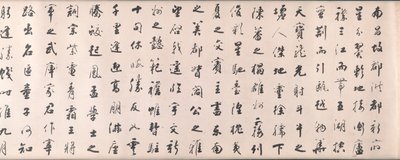 南昌故郡洪都新府
星分翼軫地接衡廬
襟三江而帶五湖控
蠻荊而引甌越物華
天寶龍光射斗牛之
墟人傑地靈徐孺下
陳蕃之榻雄州霧列
俊彩星馳臺隍枕夷
夏之交賓主盡東南
之美都督閻公之雅
望棨戟遙臨宇文新
州之懿範襜帷暫駐
十旬休暇勝友如雲
千里逢迎高朋滿座
騰蛟起鳳孟學士之
詞宗紫電清霜王將
軍之武庫家君作宰
路出名區童子何知
躬逢勝餞時維九月